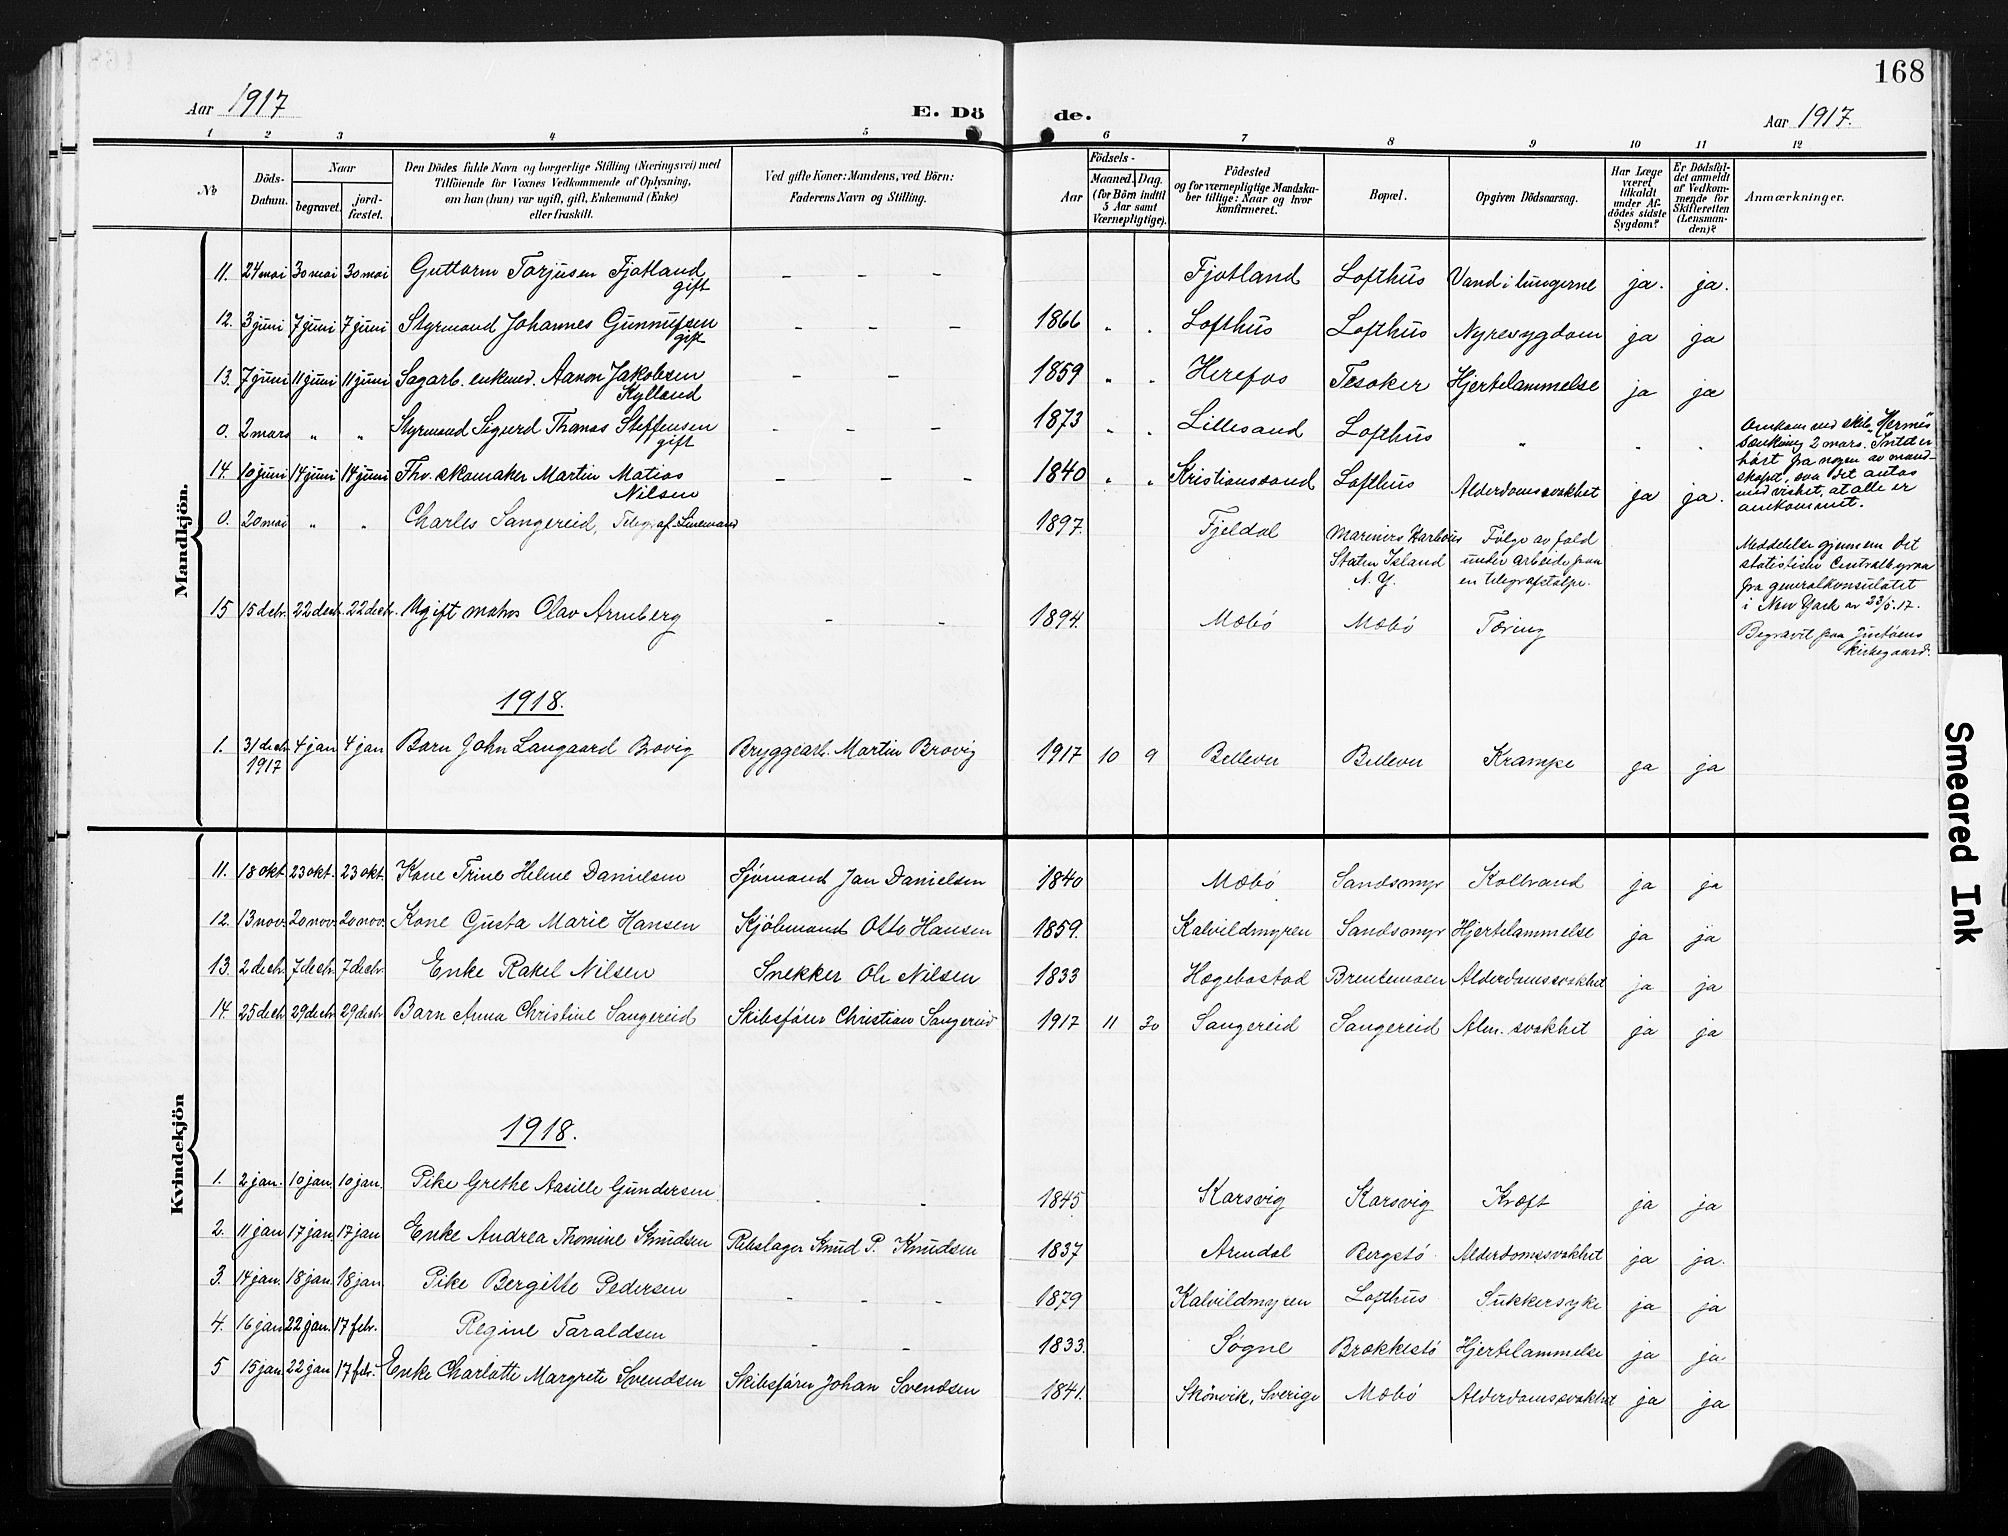 168
Aar 1917
E. Dö de.
Aar 1917.
1 2 3 4 5 6 7 8 9 10 11 12
№
Döds-
Datum.
Naar
begravet.
jord-
fæstet.
Den Dödes fulde Navn og borgerlige Stilling (Næringsvei) med
Tilföiende for Voxnes Vedkommende af Oplysning,
om han (hun) var ugift, gift, Enkemand (Enke)
eller fraskilt.
Ved gifte Koner: Mandens, ved Börn:
Faderens Navn og Stilling.
Födsels-
Aar
Maaned. Dag.
(for Börn indtil
5 Aar samt
Værnepligtige).
Födested
og for værnepligtige Mandska-
ber tillige: Naar og hvor
konfirmeret.
Bopæl.
Opgiven Dödsaarsag.
Har Læge
været
tilkaldt
under Af-
dödes sidste
Sygdom?
Er Dödsfal-
det anmeldt
af Vedkom-
mende for
Skifteretten
(Lensman-
den)?
Anmærkninger.
Mandkjön.
11. 24 mai 30 mai 30 mai Guttorm Torjusen Fjotland gift - - - Fjotland Lofthus Vand i lungerne ja. ja.
12. 3 juni 7 juni 7 juni Styrmand Johannes Gunnufsen gift - - - 1866 " . Lofthus Lofthus Nyresygdom ja ja
13. 7 juni 11 juni 11 juni Sagarb. enkemd. Aanon Jakobsen Kylland - - 1859 " . Herefos Tesaker Hjertelammelse ja ja
0. 2 mars " " Styrmand Sigurd Thomas Steffensen gift - - - 1873 " . Lillesand Lofthus " . .
Omkom ved skib "Hermes
sænkning 2 mars. Intet er
hørt fra nogen av mand-
skapet, saa det antas
med vishet, at alle er
omkommet.
14. 10 juni 14 juni 14 juni Fhv. skomaker Martin Matias Nilsen - - - 1840 " " Kristianssand Lofthus Alderdomssvakhet ja ja.
0. 20 mai " " Charles Sangereid, Telegraf-Linemand 1897. Fjeldal
Mariners Harbour
Staten Island
N.Y.
Følge av fald
under arbeide paa
en telegrafstolpe.
Meddelelse gjennem det
statistiske Centralbyraa
fra generalkonsulatet
i New York av 23/5.17.
15 15 decbr. 22 decbr. 22 decbr. Ugift matros Olav Arnberg - - 1894. Mæbø Mæbø Tæring
Begravet paa Justøens
kirkegaard.
1918.
1. 31 decbr. 1917 4 jan 4 jan Barn John Langaard Brovig Bryggearb. Martin Brovig 1917 10 9 Bellevue Bellevue Krampe ja ja
Kvindekjön
11. 18 okt 23 okt. 23 okt. Kone Trine Helene Danielsen Sjømand Jan Danielsen 1840 Mæbø Sandsmyr Koldbrand ja ja
12. 13 nov. 20 nov. 20 nov. Kone Gusta Marie Hansen Kjøbmand Otto Hansen 1859. Kalvildmyren Sandsmyr Hjertelammelse ja ja
13. 2 decbr. 7 decbr. 7 decbr. Enke Rakel Nilsen Snekker Ole Nilsen 1833 Hægebostad Brentemoen Alderdomssvakhet ja ja
14. 25 decbr 29 decbr 29 decbr Barn Anna Christine Sangereid Skibsfører Christian Sangereid 1917 11 30 Sangereid Sangereid Alm. svakhet ja ja
1918.
1. 2 jan. 10 jan. 10 jan. Pike Grethe Aasille Gundersen - - 1845 Karsvig Karsvig Kræft ja ja
2. 11 jan 17 jan 17 jan Enke Andrea Thomine Knudsen Rebslager Knud P. Knudsen 1837 Arendal Bergstø Alderdomssvakhet ja ja.
3. 14 jan. 18 jan. 18 jan. Pike Bergitte Pedersen - - - 1879 Kalvildmyren Lofthus Sukkersyke ja ja
4. 16 jan 22 jan. 17 febr. Regine Taraldsen - - 1833 Søgne Brækkestø Hjertelammelse ja ja
5 15 jan. 22 jan 17 febr. Enke Charlotte Margrete Svendsen Skibsfører Johan Svendsen 1841. Skönvik, Sverige Mæbø Alderdomssvakhet ja ja
Smeared Ink